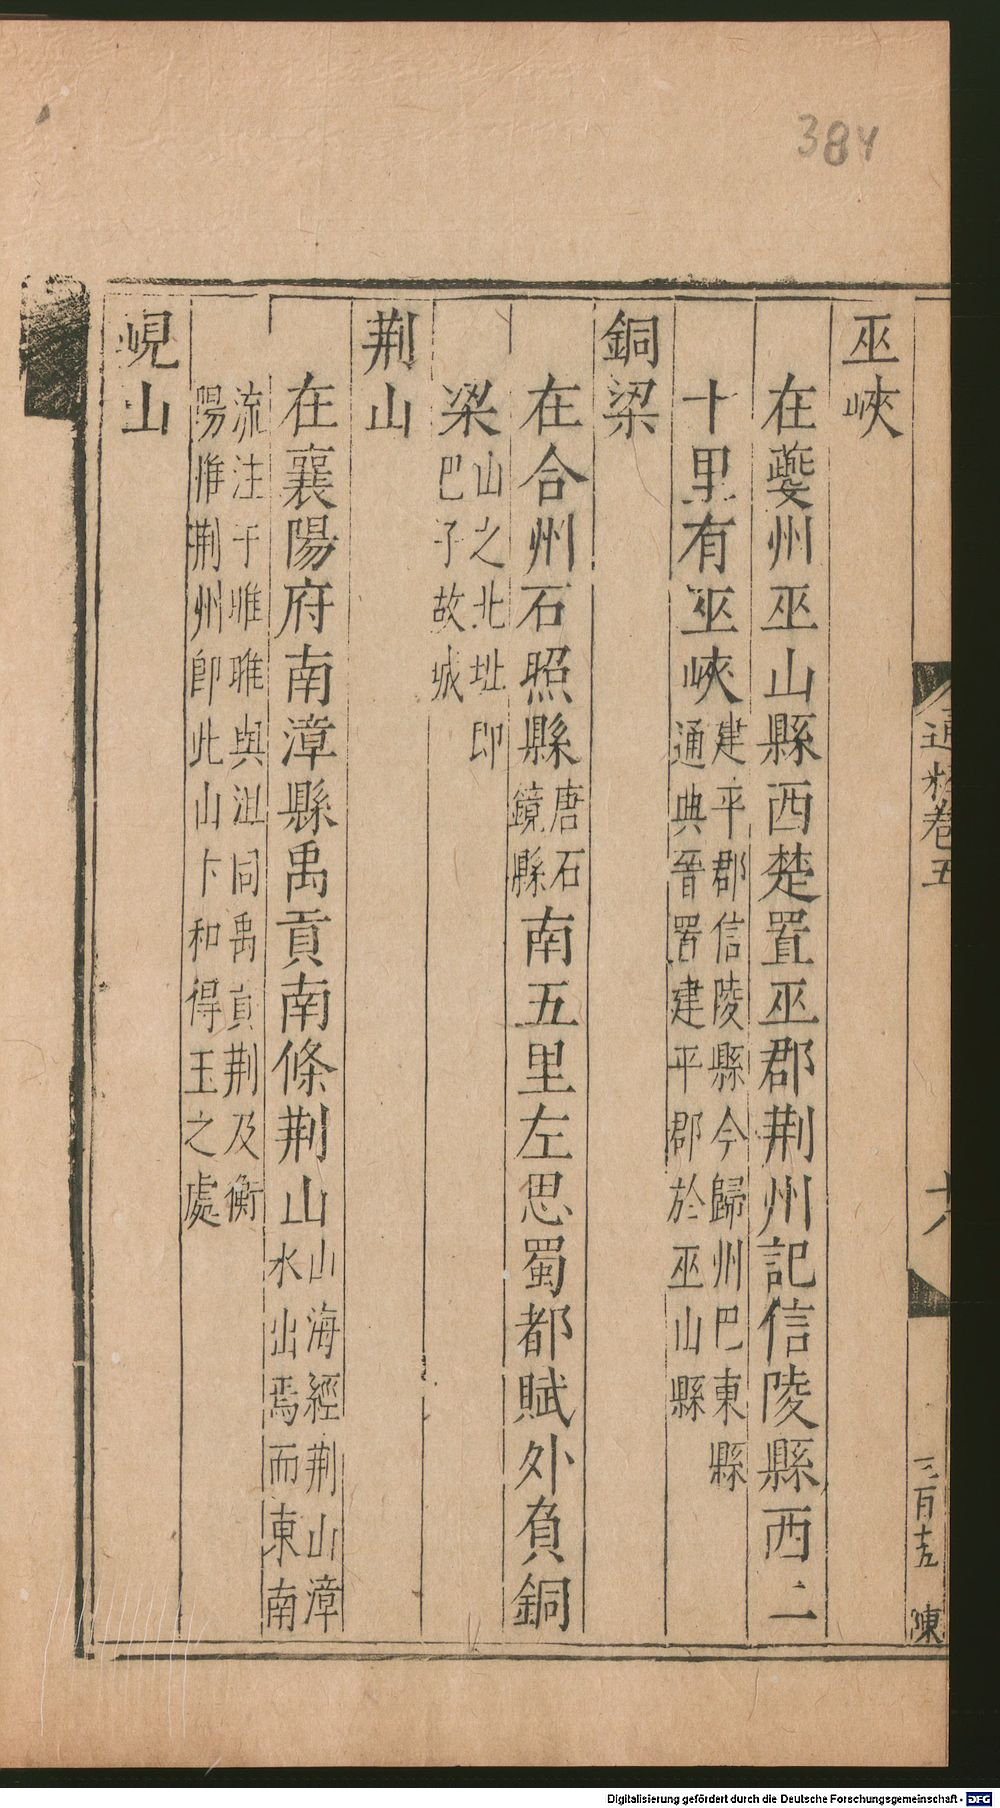 384
通釋卷五
六
三百十五 陳
巫峽
在夔州巫山縣西楚置巫郡荆州記信陵縣西二
十里有巫峽建平郡信陵縣今歸州巴東縣
通典晉置建平郡於巫山縣
銅梁
在合州石照縣唐石鏡縣南五里左思蜀都賦外負銅
梁山之北址即
巴子故城
荆山
在襄陽府南漳縣禹貢南條荆山山海經荆山漳
水出焉而東南
流注于雎雎與沮同禹貢荆及衡
陽惟荆州即此山卞和得玉之處
峴山
Digitalisierung gefördert durch die Deutsche Forschungsgemeinschaft - DFG